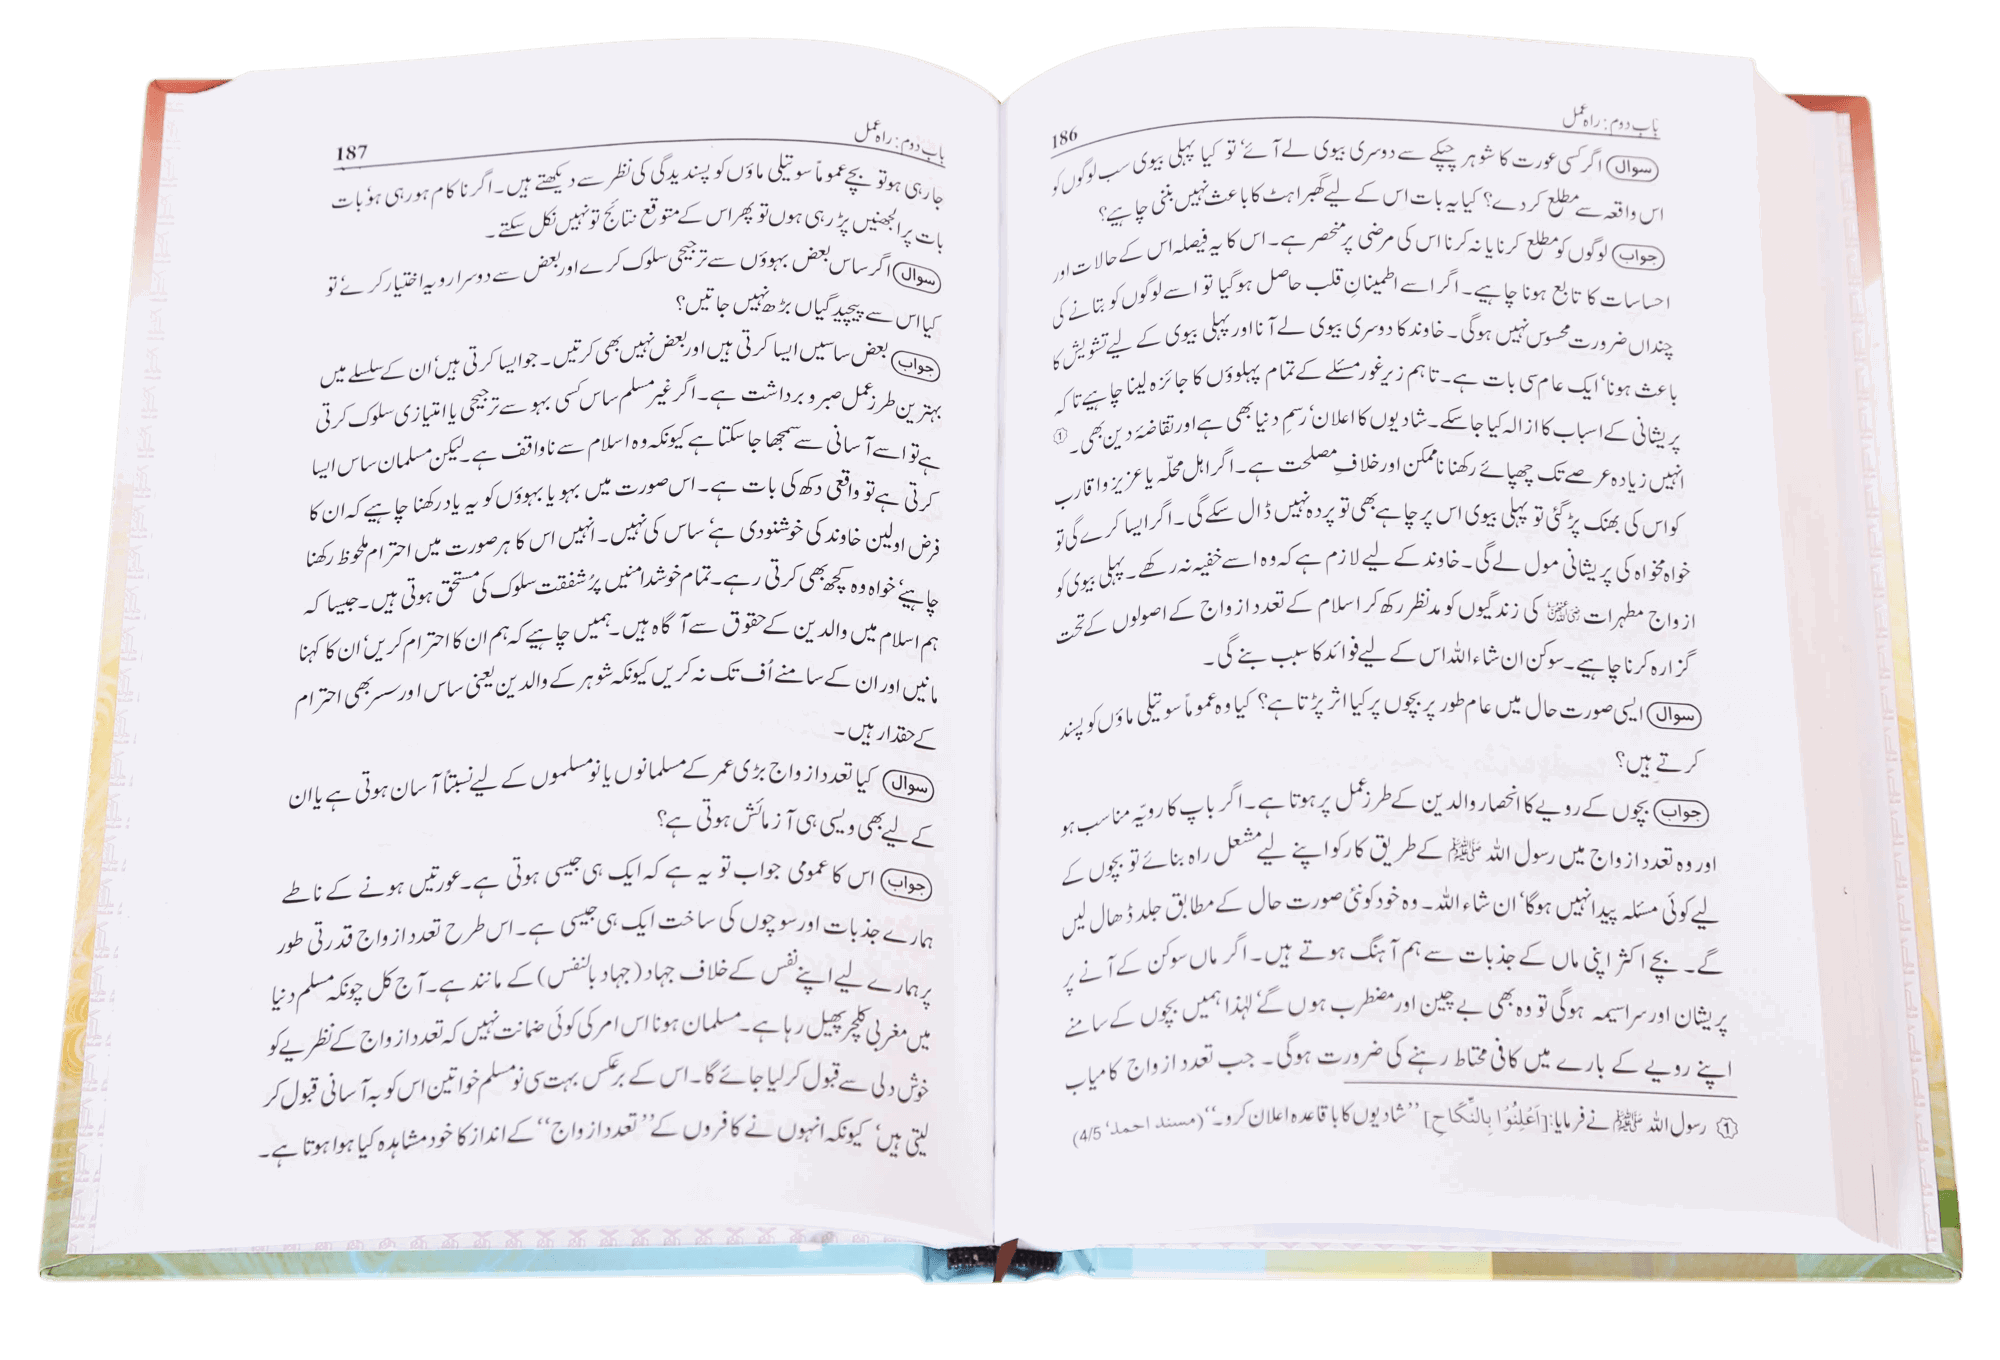 باب دوم: راہ عمل
186
سوال اگر کسی عورت کا شوہر چپکے سے دوسری بیوی لے آئے‘ تو کیا پہلی بیوی سب لوگوں کو
اس واقعہ سے مطلع کر دے؟ کیا یہ بات اس کے لیے گھبراہٹ کا باعث نہیں بننی چاہیے؟
جواب لوگوں کو مطلع کرنا یا نہ کرنا اس کی مرضی پر منحصر ہے۔ اس کا یہ فیصلہ اس کے حالات اور
احساسات کا تابع ہونا چاہیے۔ اگر اسے اطمینانِ قلب حاصل ہو گیا تو اسے لوگوں کو بتانے کی
چنداں ضرورت محسوس نہیں ہوگی۔ خاوند کا دوسری بیوی لے آنا اور پہلی بیوی کے لیے تشویش کا
باعث ہونا‘ ایک عام سی بات ہے۔ تاہم زیر غور مسئلے کے تمام پہلوؤں کا جائزہ لینا چاہیے تاکہ
پریشانی کے اسباب کا ازالہ کیا جا سکے۔ شادیوں کا اعلان‘ رسمِ دنیا بھی ہے اور تقاضۂ دین بھی۔ ①
انہیں زیادہ عرصے تک چھپائے رکھنا ناممکن اور خلافِ مصلحت ہے۔ اگر اہل محلّہ یا عزیز و اقارب
کو اس کی بھنک پڑ گئی تو پہلی بیوی اس پر چاہے بھی تو پردہ نہیں ڈال سکے گی۔ اگر ایسا کرے گی تو
خواہ مخواہ کی پریشانی مول لے گی۔ خاوند کے لیے لازم ہے کہ وہ اسے خفیہ نہ رکھے۔ پہلی بیوی کو
ازواج مطہرات رضی اللہ عنہن کی زندگیوں کو مدنظر رکھ کر اسلام کے تعدد ازواج کے اصولوں کے تحت
گزارہ کرنا چاہیے۔ سوکن ان شاء اللہ اس کے لیے فوائد کا سبب بنے گی۔
سوال ایسی صورت حال میں عام طور پر بچوں پر کیا اثر پڑتا ہے؟ کیا وہ عموماً سوتیلی ماؤں کو پسند
کرتے ہیں؟
جواب بچوں کے رویے کا انحصار والدین کے طرز عمل پر ہوتا ہے۔ اگر باپ کا رویّہ مناسب ہو
اور وہ تعدد ازواج میں رسول اللہ ﷺ کے طریق کار کو اپنے لیے مشعل راہ بنائے تو بچوں کے
لیے کوئی مسئلہ پیدا نہیں ہوگا‘ ان شاء اللہ۔ وہ خود کو نئی صورت حال کے مطابق جلد ڈھال لیں
گے۔ بچے اکثر اپنی ماں کے جذبات سے ہم آہنگ ہوتے ہیں۔ اگر ماں سوکن کے آنے پر
پریشان اور سراسیمہ ہوگی تو وہ بھی بے چین اور مضطرب ہوں گے‘ لہٰذا ہمیں بچوں کے سامنے
اپنے رویے کے بارے میں کافی محتاط رہنے کی ضرورت ہوگی۔ جب تعدد ازواج کامیاب
① رسول اللہ ﷺ نے فرمایا: [اَعْلِنُوْا بِالنِّکَاحِ] ’’شادیوں کا باقاعدہ اعلان کرو۔‘‘ (مسند احمد‘ 4/5)
باب دوم: راہ عمل
187
جا رہی ہو تو بچے عموماً سوتیلی ماؤں کو پسندیدگی کی نظر سے دیکھتے ہیں۔ اگر ناکام ہو رہی ہو‘ بات
بات پر الجھنیں پڑ رہی ہوں تو پھر اس کے متوقع نتائج تو نہیں نکل سکتے۔
سوال اگر ساس بعض بہوؤں سے ترجیحی سلوک کرے اور بعض سے دوسرا رویہ اختیار کرے‘ تو
کیا اس سے پیچیدگیاں بڑھ نہیں جاتیں؟
جواب بعض ساسیں ایسا کرتی ہیں اور بعض نہیں بھی کرتیں۔ جو ایسا کرتی ہیں‘ ان کے سلسلے میں
بہترین طرز عمل صبر و برداشت ہے۔ اگر غیر مسلم ساس کسی بہو سے ترجیحی یا امتیازی سلوک کرتی
ہے تو اسے آسانی سے سمجھا جا سکتا ہے کیونکہ وہ اسلام سے ناواقف ہے۔ لیکن مسلمان ساس ایسا
کرتی ہے تو واقعی دکھ کی بات ہے۔ اس صورت میں بہو یا بہوؤں کو یہ یاد رکھنا چاہیے کہ ان کا
فرض اولین خاوند کی خوشنودی ہے‘ ساس کی نہیں۔ انہیں اس کا ہر صورت میں احترام ملحوظ رکھنا
چاہیے‘ خواہ وہ کچھ بھی کرتی رہے۔ تمام خوشدامنیں پرُ شفقت سلوک کی مستحق ہوتی ہیں۔ جیسا کہ
ہم اسلام میں والدین کے حقوق سے آگاہ ہیں۔ ہمیں چاہیے کہ ہم ان کا احترام کریں‘ ان کا کہنا
مانیں اور ان کے سامنے اُف تک نہ کریں کیونکہ شوہر کے والدین یعنی ساس اور سسر بھی احترام
کے حقدار ہیں۔
سوال کیا تعدد ازواج بڑی عمر کے مسلمانوں یا نو مسلموں کے لیے نسبتاً آسان ہوتی ہے یا ان
کے لیے بھی ویسی ہی آزمائش ہوتی ہے؟
جواب اس کا عمومی جواب تو یہ ہے کہ ایک ہی جیسی ہوتی ہے۔ عورتیں ہونے کے ناطے
ہمارے جذبات اور سوچوں کی ساخت ایک ہی جیسی ہے۔ اس طرح تعدد ازواج قدرتی طور
پر ہمارے لیے اپنے نفس کے خلاف جہاد (جہاد بالنفس) کے مانند ہے۔ آج کل چونکہ مسلم دنیا
میں مغربی کلچر پھیل رہا ہے۔ مسلمان ہونا اس امر کی کوئی ضمانت نہیں کہ تعدد ازواج کے نظریے کو
خوش دلی سے قبول کر لیا جائے گا۔ اس کے برعکس بہت سی نو مسلم خواتین اس کو بہ آسانی قبول کر
لیتی ہیں‘ کیونکہ انہوں نے کافروں کے ’’تعدد ازواج‘‘ کے انداز کا خود مشاہدہ کیا ہوا ہوتا ہے۔